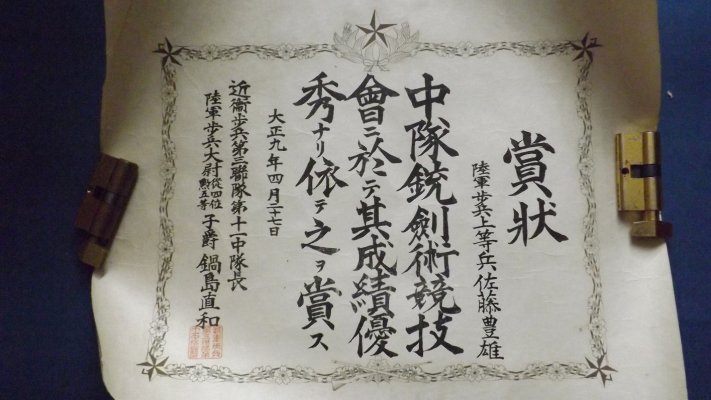 賞狀
陸軍步兵上等兵佐藤豊雄
中隊銃劍術競技
會ニ於テ其成績優
秀ナリ依テ之ヲ賞ス
大正九年四月二十七日
近衞步兵第三聯隊第十一中隊長
陸軍步兵大尉從四位勲五等子爵鍋島直和